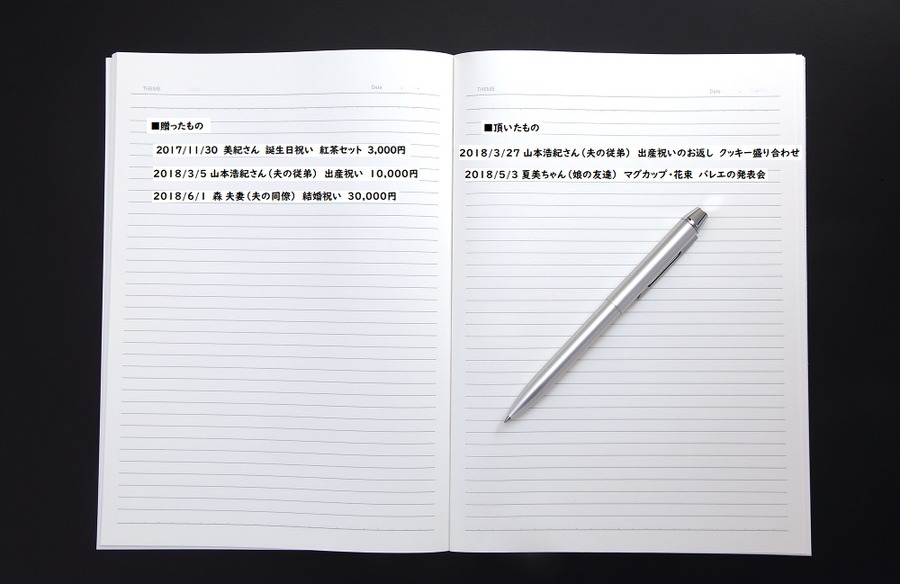 THEME
Date
■贈ったもの
2017/11/30 美紀さん 誕生日祝い 紅茶セット 3,000円
2018/3/5 山本浩紀さん(夫の従弟) 出産祝い 10,000円
2018/6/1 森 夫妻(夫の同僚) 結婚祝い 30,000円
THEME
Date
■頂いたもの
2018/3/27 山本浩紀さん(夫の従弟) 出産祝いのお返し クッキー盛り合わせ
2018/5/3 夏美ちゃん(娘の友達) マグカップ・花束 バレエの発表会